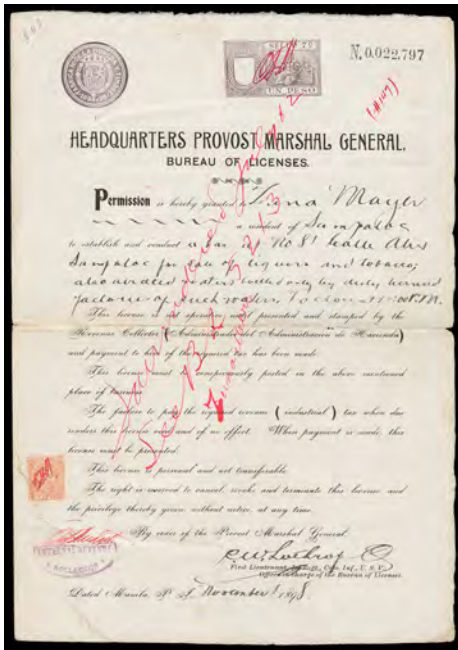 SELLO 7º
UN PESO
N. 0,022,797
HEADQUARTERS PROVOST MARSHAL GENERAL.
BUREAU OF LICENSES.
Permission is hereby granted to Mayer
a resident of Sampaloc
to establish and conduct a bar at No 8 Calle
Sampaloc for sale of liquors and tobacco;
also aerated waters bottled only by duly licensed
factories of such waters. To close at
This license is not operative until presented and stamped by the
Revenue Collector (Administrador del Administracion de Hacienda)
and payment to him of the required tax has been made.
This license must be conspicuously posted in the above mentioned
place of business.
The failure to pay the required income (industrial) tax when due
renders this license void and of no effect. When payment is made, this
license must be presented.
This license is personal and not transferable.
The right is reserved to cancel, revoke and terminate this license and
the privilege thereby given without notice, at any time.
By order of the Provost Marshal General.
First Lieutenant, Colo. Inf., U. S. V.,
Officer in charge of the Bureau of Licenses.
Dated Manila, P. I. November 1898
See